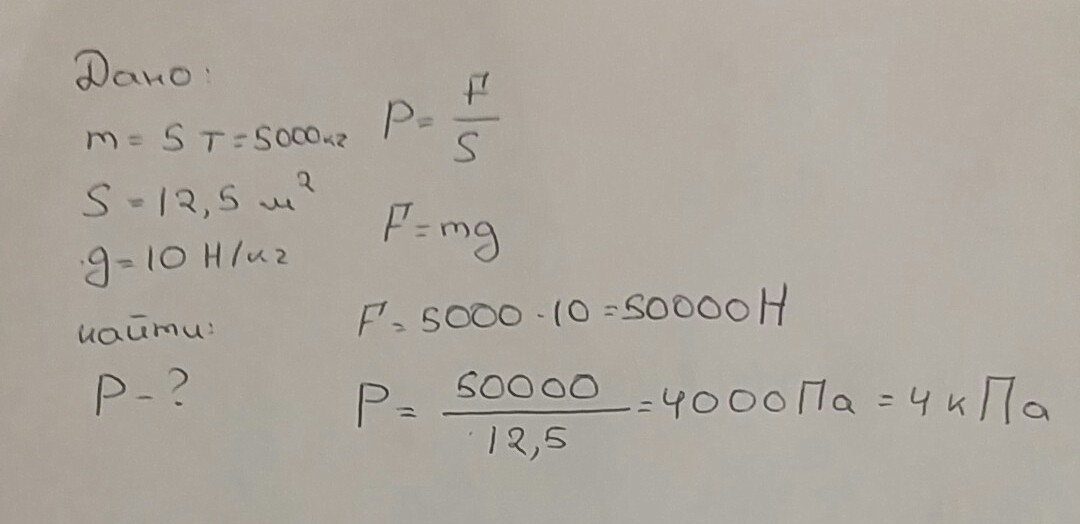 Дано:
m = 5 т = 5000кг
S = 12,5 м²
g = 10 Н/кг
найти:
P - ?
P = F/S
F = mg
F = 5000 · 10 = 50000Н
P = 50000/12,5 = 4000Па = 4кПа